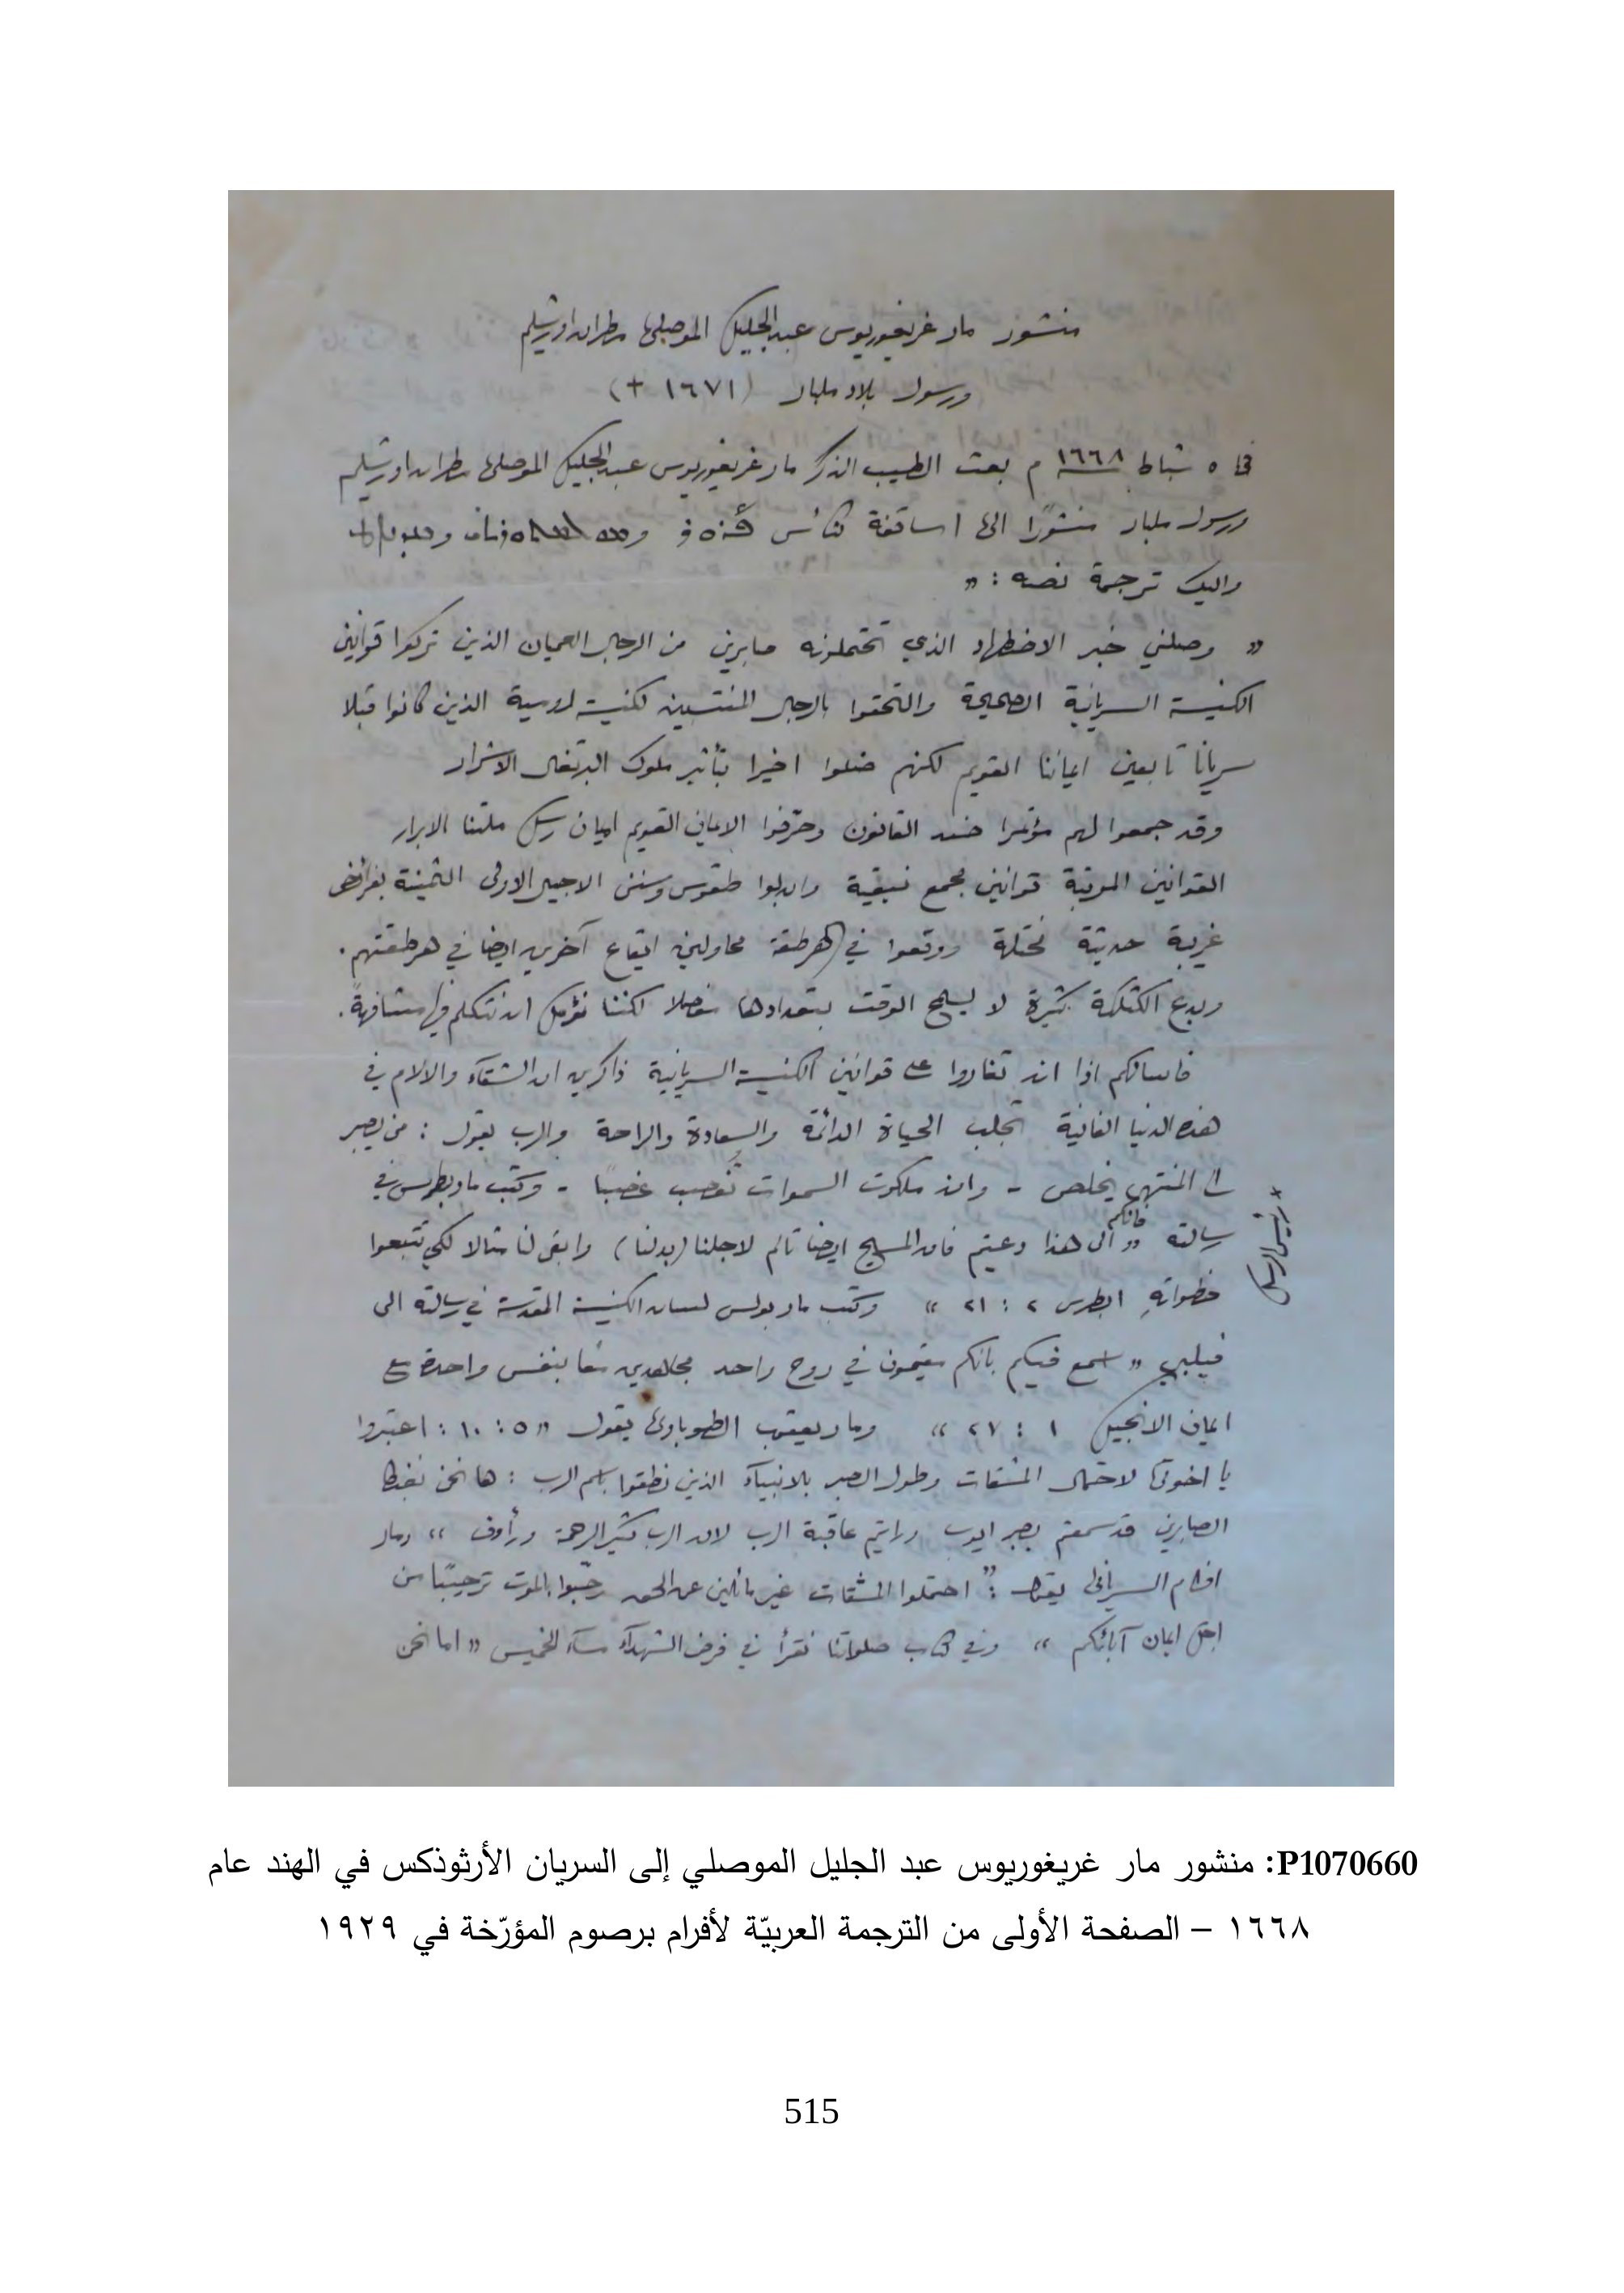 منشور مار غريغوريوس عبد الجليل الموصلي مطران اورشليم
ورسول بلاد ملبار (١٦٧١ +)
في ٥ شباط ١٦٦٨ م بعث الطيب الذكر مار غريغوريوس عبد الجليل الموصلي مطران اورشليم
ورسول ملبار منشورًا الى اساقفة كنائس
واليك ترجمة نصه : „
„ وصلني خبر الاضطهاد الذي تحتملونه صابرين من الرجال العميان الذين تركوا قوانين
الكنيسة السريانية الصحيحة والتحقوا بالرجال المنتسبين لكنيسة رومية الذين كانوا قبلا
سريانا تابعين ايماننا القويم لكنهم ضلوا اخيرا بتأثير ملوك البرتغال الاشرار
وقد جمعوا لهم مؤتمرا ضد القانون وحرّفوا الايمان القويم ايمان رسل ملتنا الابرار
القوانين المرتبة قوانين مجمع نيقية وابدلوا طقوس وسنن الاجيال الاولى الثمينة بفرائض
غريبة حديثة مختلة ووقعوا في الهرطقة محاولين ايقاع آخرين ايضا في هرطقتهم .
وبدع الكثلكة كثيرة لا يسمح الوقت بتعدادها مفصلا لكننا نؤمل ان نتكلم فيها مشافهةً .
فاسالكم اذا ان تغاروا على قوانين الكنيسة السريانية ذاكرين ان الشقاء والالام في
هذه الدنيا الفانية تجلب الحياة الدائمة والسعادة والراحة والرب يقول : من يصبر
الى المنتهى يخلص - وان ملكوت السموات تُغصب غصبًا - وكتب مار بطرس في
+ رئيس الرسل
رسالته „ فانكم الى هذا دعيتم فان المسيح ايضا تالم لاجلنا (بدلنا) وابقى لنا مثالا لكي تتبعوا
خطواتهِ ١بطرس ٢ : ٢١ “ وكتب مار بولس لسان الكنيسة المقدسة في رسالته الى
فيلبي „ اسمع فيكم بانكم مقيمون في روح واحد مجاهدين معًا بنفس واحدة مع
ايمان الانجيل ١ : ٢٧ “ ومار يعقوب الطوباوي يقول „ ٥ : ١٠ : اعتبروا
يا اخوتي لاحتمال المشقات وطول الصبر بالانبياء الذين نطقوا باسم الرب : ها نحن نغبط
الصابرين قد سمعتم بصبر ايوب ورايتم عاقبة الرب لان الرب كثير الرحمة ورأوف “ ومار
افرام السرياني يقول : „ احتملوا المشقات غير مائلين عن الحق رحّبوا بالموت ترحيبًا من
اجل ايمان آبائكم “ وفي كتاب صلواتنا نقرأ في فرض الشهداء مساء الخميس „ اما نحن
P1070660: منشور مار غريغوريوس عبد الجليل الموصلي إلى السريان الأرثوذكس في الهند عام
١٦٦٨ – الصفحة الأولى من الترجمة العربيّة لأفرام برصوم المؤرّخة في ١٩٢٩
515